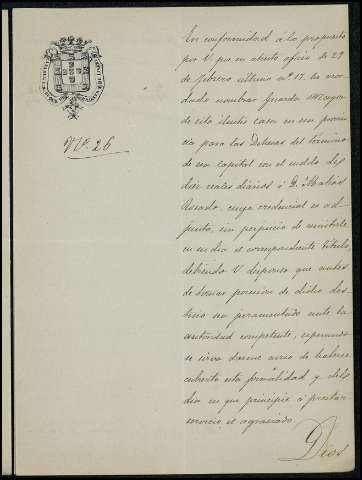 Nº. 26
En conformidad a lo propuesto
por V. por su atento oficio de 29
de febrero último nº 17. he acor
dado nombrar Guarda Mayor
de esta ilustre casa en esa provin
cia para las Dehesas del término
de esa capital con el sueldo de
diez reales diarios á D. Matias
cuya credencial es ad
junta, sin perjuicio de remitirle
en su dia el correspondiente título
debiendo V. disponer que antes
de tomar posesion de dicho des
tino sea juramentado ante la
autoridad competente, esperando
se sirva darme aviso de haberse
cubierto esta formalidad y del
dia en que principie á prestar
servicio el agraciado.
Dios